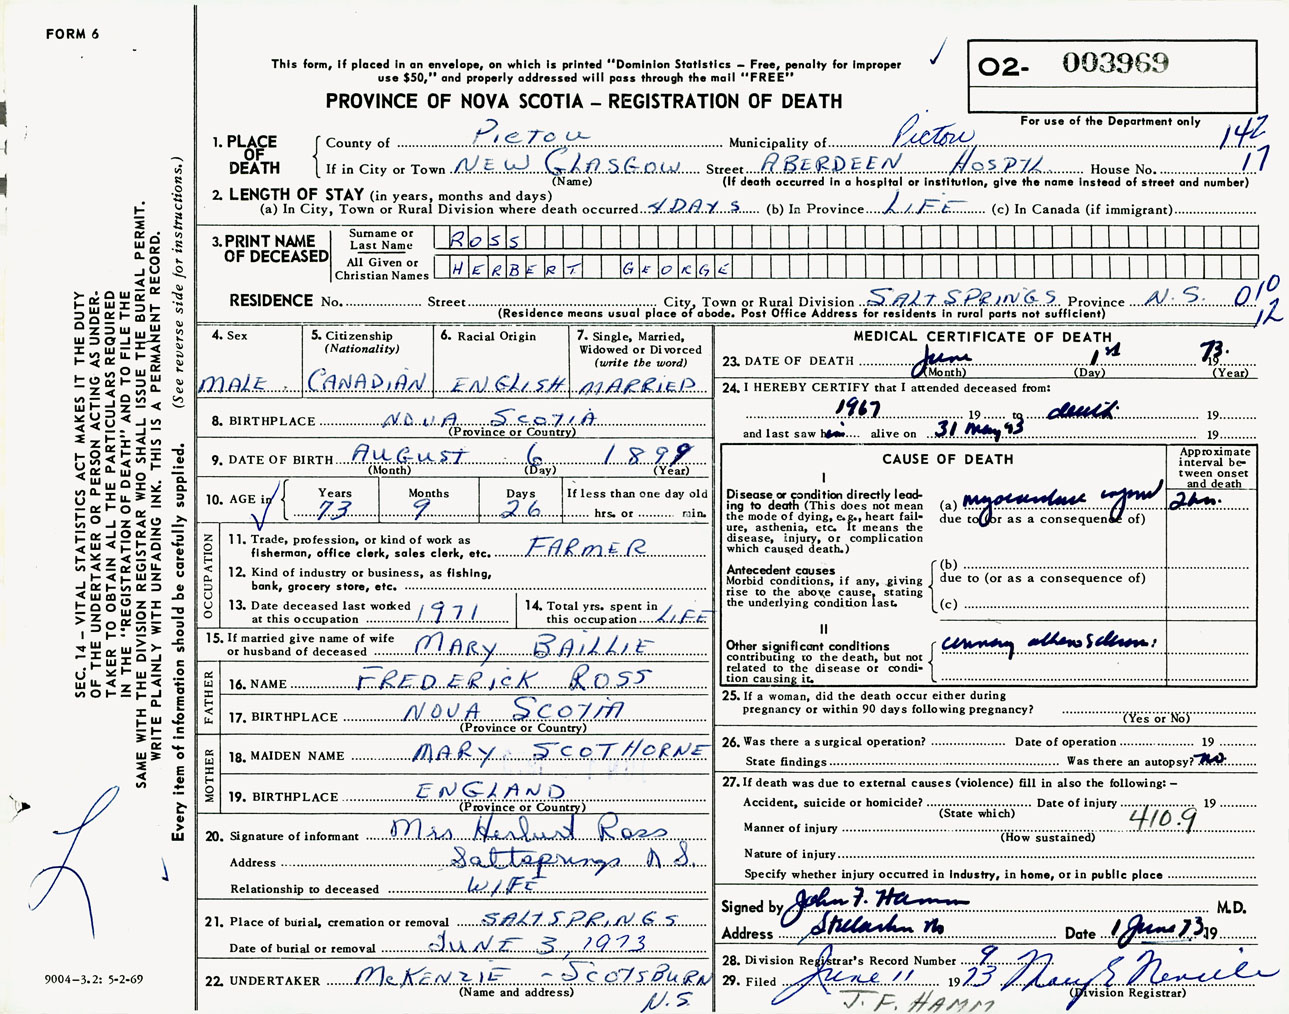 FORM 6
This form, if placed in an envelope, on which is printed "Dominion Statistics – Free, penalty for improper
use $50," and properly addressed will pass through the mail "FREE"
PROVINCE OF NOVA SCOTIA – REGISTRATION OF DEATH
02- 003969
For use of the Department only
147
17
1. PLACE OF DEATH County of PICTOU Municipality of Pictou
If in City or Town NEW GLASGOW Street ABERDEEN HOSPTL House No.
(Name) (If death occurred in a hospital or institution, give the name instead of street and number)
2. LENGTH OF STAY (in years, months and days)
(a) In City, Town or Rural Division where death occurred 4 DAYS (b) In Province LIFE (c) In Canada (if immigrant)
3. PRINT NAME OF DECEASED
Surname or Last Name ROSS
All Given or Christian Names HERBERT GEORGE
RESIDENCE No. Street City, Town or Rural Division SALTSPRINGS Province N.S. 010
12
(Residence means usual place of abode. Post Office Address for residents in rural parts not sufficient)
4. Sex
MALE
5. Citizenship
(Nationality)
CANADIAN
6. Racial Origin
ENGLISH
7. Single, Married,
Widowed or Divorced
(write the word)
MARRIED
8. BIRTHPLACE NOVA SCOTIA
(Province or Country)
9. DATE OF BIRTH AUGUST 6 1899
(Month) (Day) (Year)
10. AGE in Years Months Days If less than one day old
73 9 26 hrs. or min.
OCCUPATION
11. Trade, profession, or kind of work as
fisherman, office clerk, sales clerk, etc. FARMER
12. Kind of industry or business, as fishing,
bank, grocery store, etc.
13. Date deceased last worked
at this occupation 1971
14. Total yrs. spent in
this occupation LIFE
15. If married give name of wife
or husband of deceased MARY BAILLIE
FATHER
16. NAME FREDERICK ROSS
17. BIRTHPLACE NOVA SCOTIA
(Province or Country)
MOTHER
18. MAIDEN NAME MARY SCOTHORNE
19. BIRTHPLACE ENGLAND
(Province or Country)
20. Signature of informant Mrs Herbert Ross
Address Saltsprings N S.
Relationship to deceased WIFE
21. Place of burial, cremation or removal SALTSPRINGS
Date of burial or removal JUNE 3, 1973
22. UNDERTAKER McKENZIE – SCOTSBURN
(Name and address) N.S.
MEDICAL CERTIFICATE OF DEATH
23. DATE OF DEATH June 1st 73 19
(Month) (Day) (Year)
24. I HEREBY CERTIFY that I attended deceased from:
1967 19 to death 19
and last saw him alive on 31 May 73 19
CAUSE OF DEATH
Approximate
interval be-
tween onset
and death
I
Disease or condition directly lead-
ing to death (This does not mean
the mode of dying, e.g., heart fail-
ure, asthenia, etc. It means the
disease, injury, or complication
which caused death.)
(a) 2 hrs.
due to (or as a consequence of)
Antecedent causes
Morbid conditions, if any, giving
rise to the above cause, stating
the underlying condition last.
(b)
due to (or as a consequence of)
(c)
II
Other significant conditions
contributing to the death, but not
related to the disease or condi-
tion causing it.
25. If a woman, did the death occur either during
pregnancy or within 90 days following pregnancy?
(Yes or No)
26. Was there a surgical operation? Date of operation 19
State findings Was there an autopsy? no
27. If death was due to external causes (violence) fill in also the following: –
Accident, suicide or homicide? Date of injury 19
(State which)
410.9
Manner of injury
(How sustained)
Nature of injury
Specify whether injury occurred in Industry, in home, or in public place
Signed by John F. Hamm M.D.
Address Date 1 June 73 19
28. Division Registrar's Record Number 9
29. Filed June 11 1973 Mary E Neville
(Division Registrar)
J. F. HAMM
SEC. 14 – VITAL STATISTICS ACT MAKES IT THE DUTY
OF THE UNDERTAKER OR PERSON ACTING AS UNDER-
TAKER TO OBTAIN ALL THE PARTICULARS REQUIRED
IN THE "REGISTRATION OF DEATH" AND TO FILE THE
SAME WITH THE DIVISION REGISTRAR WHO SHALL ISSUE THE BURIAL PERMIT.
WRITE PLAINLY WITH UNFADING INK. THIS IS A PERMANENT RECORD.
Every item of information should be carefully supplied. (See reverse side for instructions.)
9004–3.2: 5-2-69